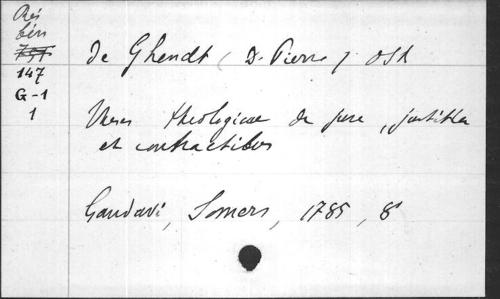 Rés
bén
147
G-1
1
de Ghendt (D. Pierre) OSA
Theses theologicae de jure, justitia
et contractibus
Gandavi, Somers, 1785, 8°